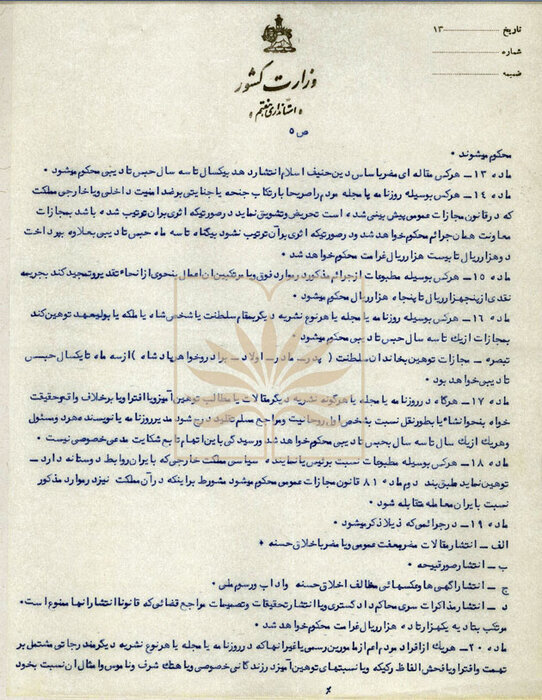 تاریخ ۱۳
شماره
ضمیمه
وزارت کشور
استانداری هفتم
ص ۵
محکوم میشوند .
ماده ۱۳ ـ هرکس مقاله ای مضرباساس دین حنیف اسلام انتشاردهد بیکسال تاسه سال حبس تادیبی محکوم میشود .
ماده ۱۴ ـ هرکس بوسیله روزنامه یا مجله مردم راصریحا بارتکاب جنحه یا جنایتی برضد امنیت داخلی ویاخارجی مملکت
که درقانون مجازات عمومی پیش بینی شده است تحریض وتشویق نماید درصورتیکه اثری برآن ترتیب شده باشد بمجازات
معاونت همان جرائم محکوم خواهد شد ودرصورتیکه اثری برآن ترتیب نشود بیکماه تاسه ماه حبس تادیبی بعلاوه بپرداخت
دوهزارریال تا بیست هزارریال غرامت محکوم خواهد شد .
ماده ۱۵ ـ هرکس بوسیله مطبوعات ازجرائم مذکوره درموارد فوق ویا مرتکبین آن اعمال بنحوی ازانحاء تقدیروتمجید کند بجریمه
نقدی ازپنجهزارریال تا پنجاه هزارریال محکوم میشود .
ماده ۱۶ ـ هرکس بوسیله روزنامه یا مجله یا هرنوع نشریه دیگربمقام سلطنت یا شخص شاه یا ملکه یا بولیعهد توهین کند
بمجازات ازیک تاسه سال حبس تادیبی محکوم میشود .
تبصره ـ مجازات توهین بخاندان سلطنت ( پدر ـ مادر ـ اولاد ـ برادروخواهرپادشاه ) ازسه ماه تا یکسال حبس
تادیبی خواهد بود .
ماده ۱۷ ـ هرگاه درروزنامه یا مجله یا هرگونه نشریه دیگر مقالات یا مطالب توهین آمیزویا افترا ویا برخلاف واقع وحقیقت
خواه بنحوانشاء یا بطورنقل نسبت بشخص اول روحانیت ومراجع مسلم تقلید درج شود مدیرروزنامه یا نویسنده هردو مسئول
وهریک ازیک سال تا سه سال بحبس تادیبی محکوم خواهد شد ورسیدگی باین اتهام تابع شکایت مدعی خصوصی نیست .
ماده ۱۸ ـ هرکس بوسیله مطبوعات نسبت برئیس یا نماینده سیاسی مملکت خارجی که با ایران روابط دوستانه دارد ـ
توهین نماید طبق بند دوم ماده ۸۱ قانون مجازات عمومی محکوم میشود مشروط براینکه درآن مملکت نیزدرموارد مذکور
نسبت با ایران معامله متقابله شود .
ماده ۱۹ ـ درجرائمی که ذیلا ذکرمیشود .
الف ـ انتشارمقالات مضربعفت عمومی ویا مضرباخلاق حسنه .
ب ـ انتشارصورقبیحه .
ج ـ انتشارآگهی ها وعکسهائی مخالف اخلاق حسنه وآداب ورسوم ملی .
د ـ انتشارمذاکرات سری محاکم دادگستری ویا انتشارتحقیقات وتصمیمات مراجع قضائی که قانونا انتشارآنها ممنوع است .
مرتکب بتادیه یکهزارتا ده هزارریال غرامت محکوم خواهد شد .
ماده ۲۰ ـ هریک ازافراد مردم اعم ازمامورین رسمی یا غیرآنها که درروزنامه یا مجله یا هرنوع نشریه دیگرمندرجاتی مشتمل بر
تهمت وافترا ویا فحش الفاظ رکیکه ویا نسبتهای توهین آمیزدرزندگانی خصوصی ویا هتک شرف وناموس وامثال آن نسبت بخود